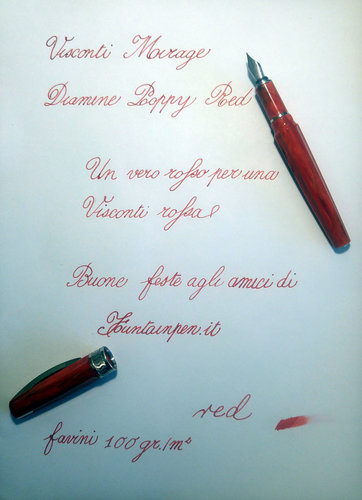 Visconti Mirage
Diamine Poppy Red
Un vero rosso per una
Visconti rossa
Buone feste agli amici di
Funtainpen.it
red
favini 100 gr./m²